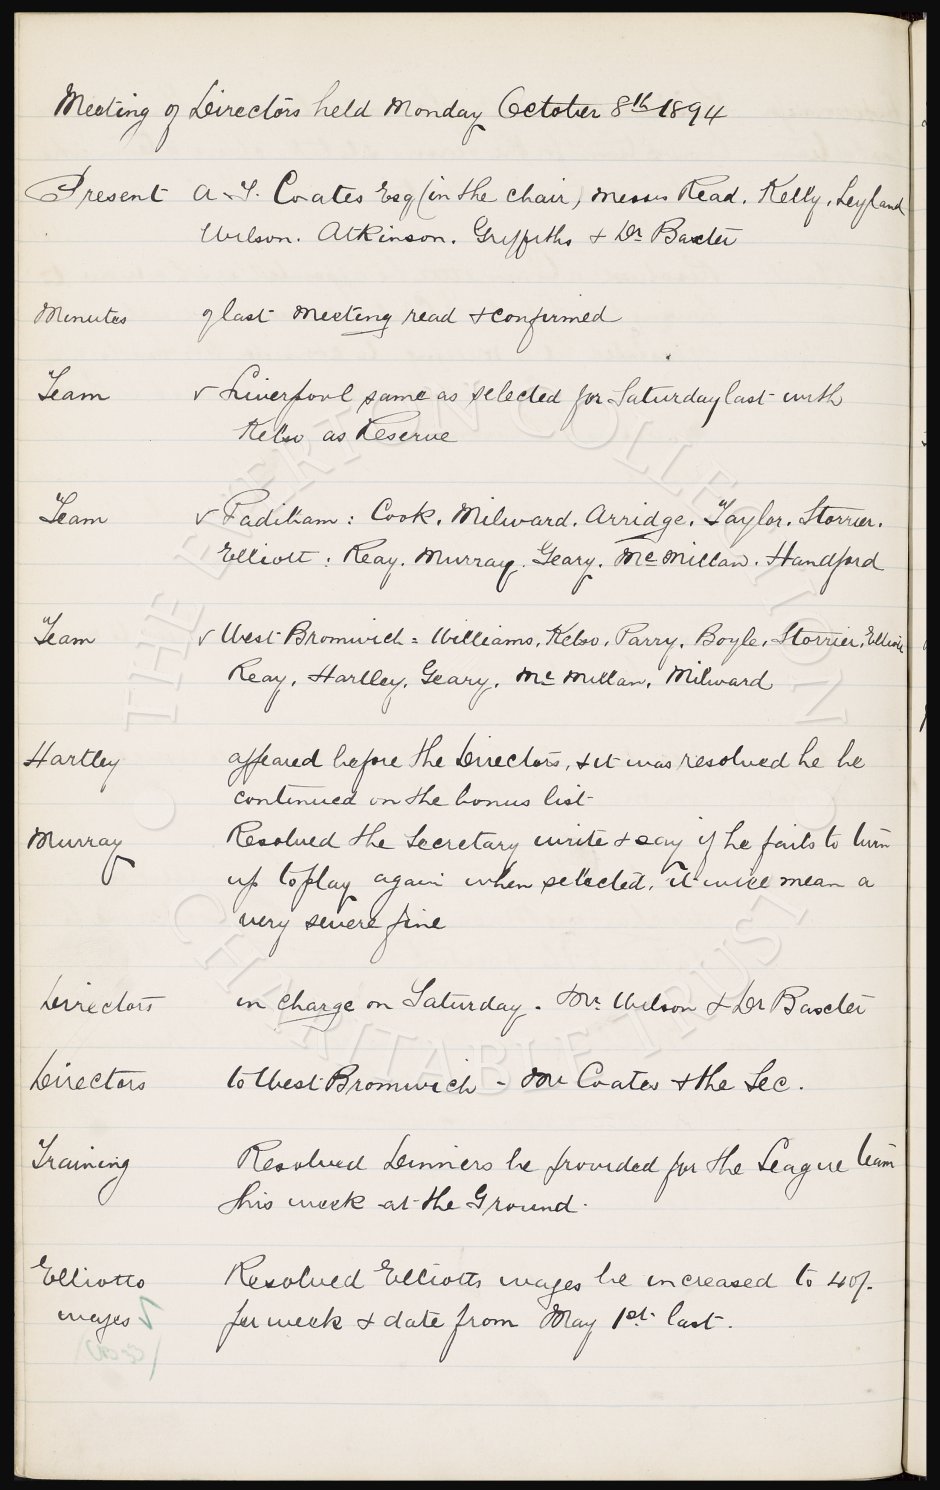 Meeting of Directors held Monday October 8th 1894
Present A. T. Coates Esq (in the chair) Messrs Read. Kelly. Leyland
Wilson. Atkinson. Griffiths & Dr Baxter
Minutes of last meeting read & confirmed
Team v Liverpool same as selected for Saturday last with
Kelso as Reserve
Team v Padiham: Cook. Milward. Arridge. Taylor. Storrier.
Elliott: Reay. Murray. Geary. McMillan. Handford
Team v West Bromwich = Williams. Kelso. Parry. Boyle. Storrier. Elliott
Reay. Hartley. Geary. McMillan. Milward
Hartley appeared before the Directors, & it was resolved he be
continued on the bonus list
Murray Resolved the Secretary write & say if he fails to turn
up to play again when selected, it will mean a
very severe fine
Directors in charge on Saturday. Mr. Wilson & Dr Baxter
Directors to West Bromwich - Mr Coates & the Sec.
Training Resolved Dinners be provided for the League team
this week at the Ground.
Elliotts Resolved Elliotts wages be increased to 40/-
wages per week & date from May 1st last.
THE EVERTON COLLECTION
CHARITABLE TRUST